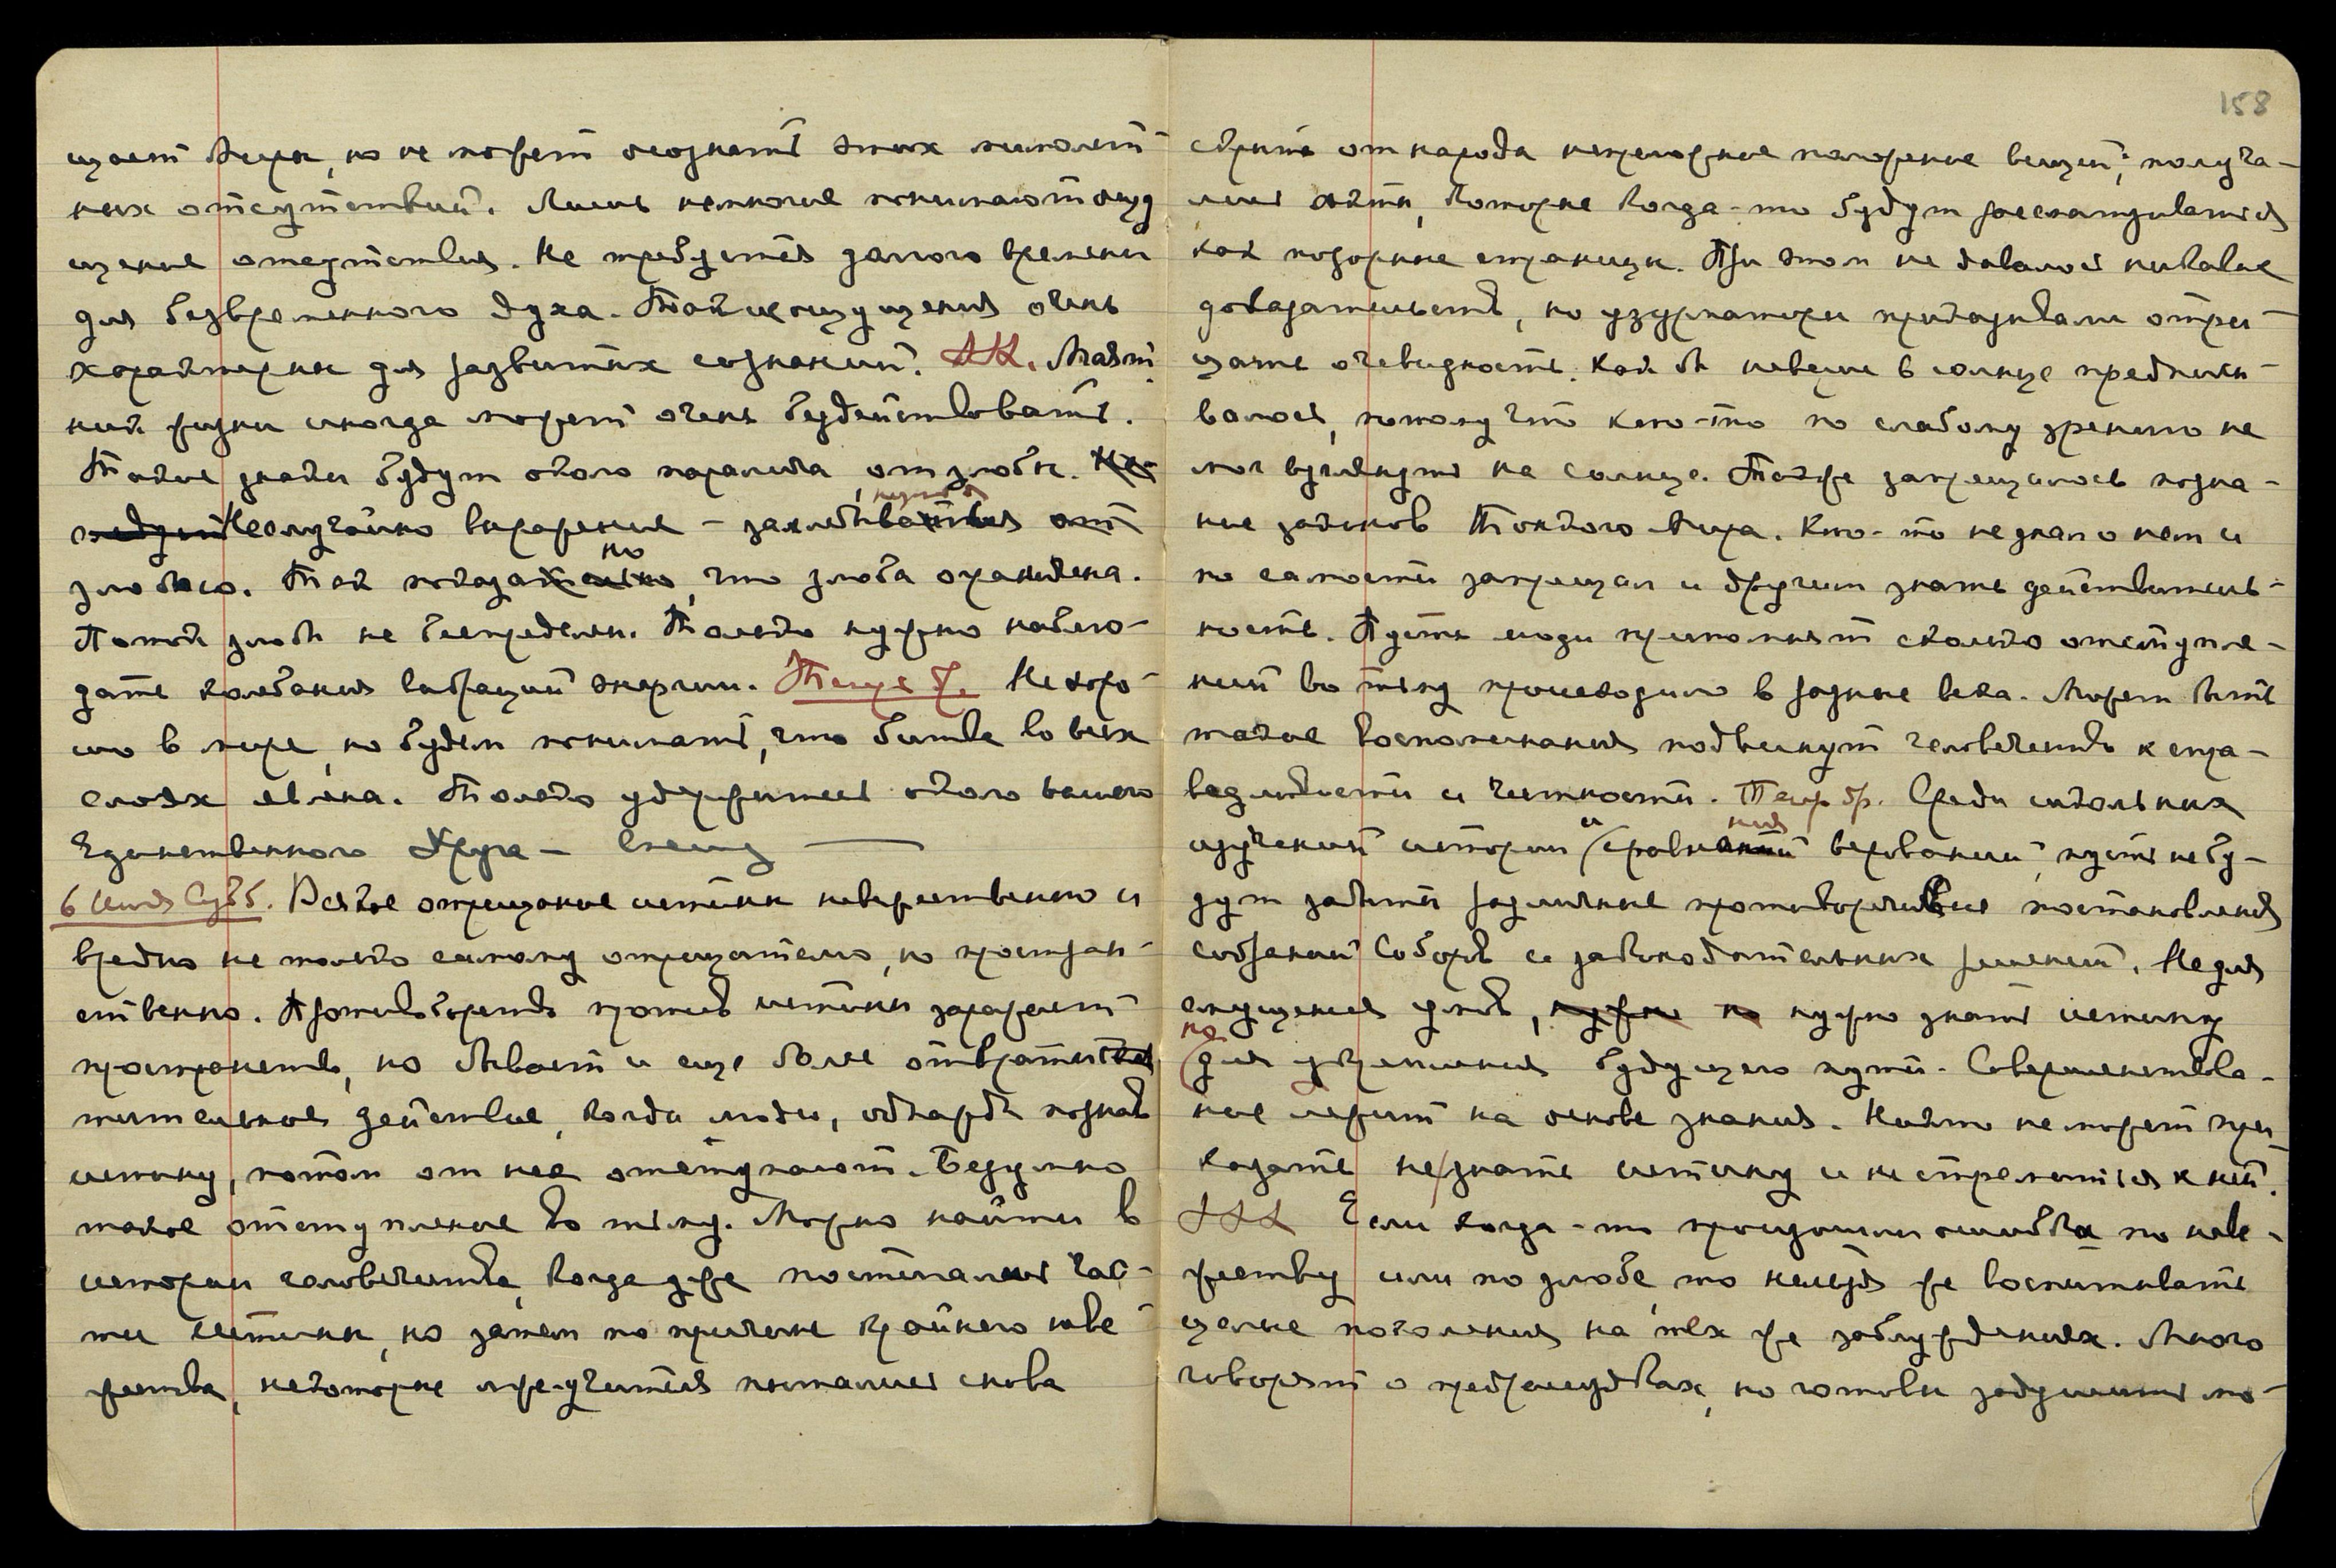 щает Миры, но не может осознать этих мимолет-
ных отсутствий. Лишь немногие понимают ощу
щение отсутствия. Не требуется долгого времени
для безвременного духа. Такие ощущения очень
характерны для развитых сознаний. Маят
ник жизни иногда может очень бездействовать.
Такие знаки будут около паралича от злобы.
Неслучайно выражение – захлебнуться
злобою. Так показано, что злоба ограничена.
Поток злобы не беспределен. Только нужно наблю-
дать колебания вибраций энергии. Не хоро-
шо в мире, но будем понимать, что битва во всех
слоях явлена. Только удержитесь около вашего
Единственного Друга –
6 Июля Субб. Всякое отрицание истины невежественно и
вредно не только самому отрицателю, но простран-
ственно. Противоборство против истины заражает
пространство, но бывает и еще более отврати
тельное действие, когда люди, однажды познав
истину, потом от нее отступают. Безумно
такое отступление во тьму. Можно найти в
истории человечества, когда уже постигались час-
ти Истины, но затем по причине крайнего неве-
жества, некоторые лжеучителя пытались снова
158
скрыть от народа непреложное положение вещей; получа-
лись акты, которые когда-то будут рассматриваться
как позорные страницы. При этом не давалось никаких
доказательств, но узурпаторы приказывали отри-
цать очевидность. Как бы неверие в солнце предписы-
валось, потому что кто-то по слабому зрению не
мог взглянуть на солнце. Также запрещалось позна-
ние законов Тонкого Мира. Кто-то не знал о нем и
по самости запрещал и другим знать действитель-
ность. Пусть люди припомнят сколько отступле-
ний во тьму происходило в разные века. Может быть
такие воспоминания подвинут человечество к спра-
ведливости и честности. Среди школьных
изучений истории и сравнения верований, пусть не бу-
дут забыты различные противоречивые постановления
собраний Соборов и законодательных решений. Не для
смущения умов, нужно знать истину
но для устремления будущего пути. Совершенствова-
ние лежит на основе знания. Никто не может при-
казать не знать истину и не стремиться к ней.
Если когда-то произошли ошибки по неве-
жеству или по злобе, то нельзя же воспитывать
целые поколения на тех же заблуждениях. Много
говорят о предрассудках, но готовы задушить по-